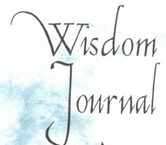 Wisdom
Journal